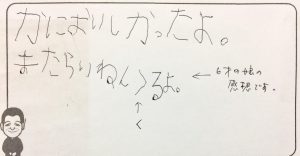 かにおいしかったよ。
またらいねん>るよ。
↑
く
← 6才の娘の
感想です。